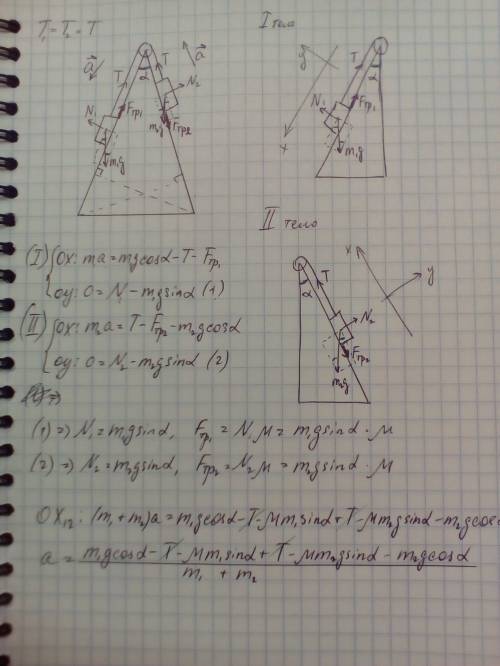 T₁ = T₂ = T
I тело
a⃗
a⃗
T
α
T
N₂
N₁
Fтр₁
m₂g
Fтр₂
m₁g
y
α
T
N₁
Fтр₁
m₁g
x
II тело
x
y
T
α
N₂
Fтр₂
m₂g
(I) {OX: ma = m₁gcosα - T - Fтр₁
OY: O = N₁ - m₁gsinα (1)
(II) {OX: m₂a = T - Fтр₂ - m₂gcosα
OY: O = N₂ - m₂gsinα (2)
(1) => N₁ = m₁gsinα, Fтр₁ = N₁μ = m₁gsinα · μ
(2) => N₂ = m₂gsinα, Fтр₂ = N₂μ = m₂gsinα · μ
OX₁₂: (m₁ + m₂)a = m₁gcosα - T - μm₁sinα + T - μm₂gsinα - m₂gcos
a = m₁gcosα - T - μm₁sinα + T - μm₂gsinα - m₂gcosα
m₁ + m₂